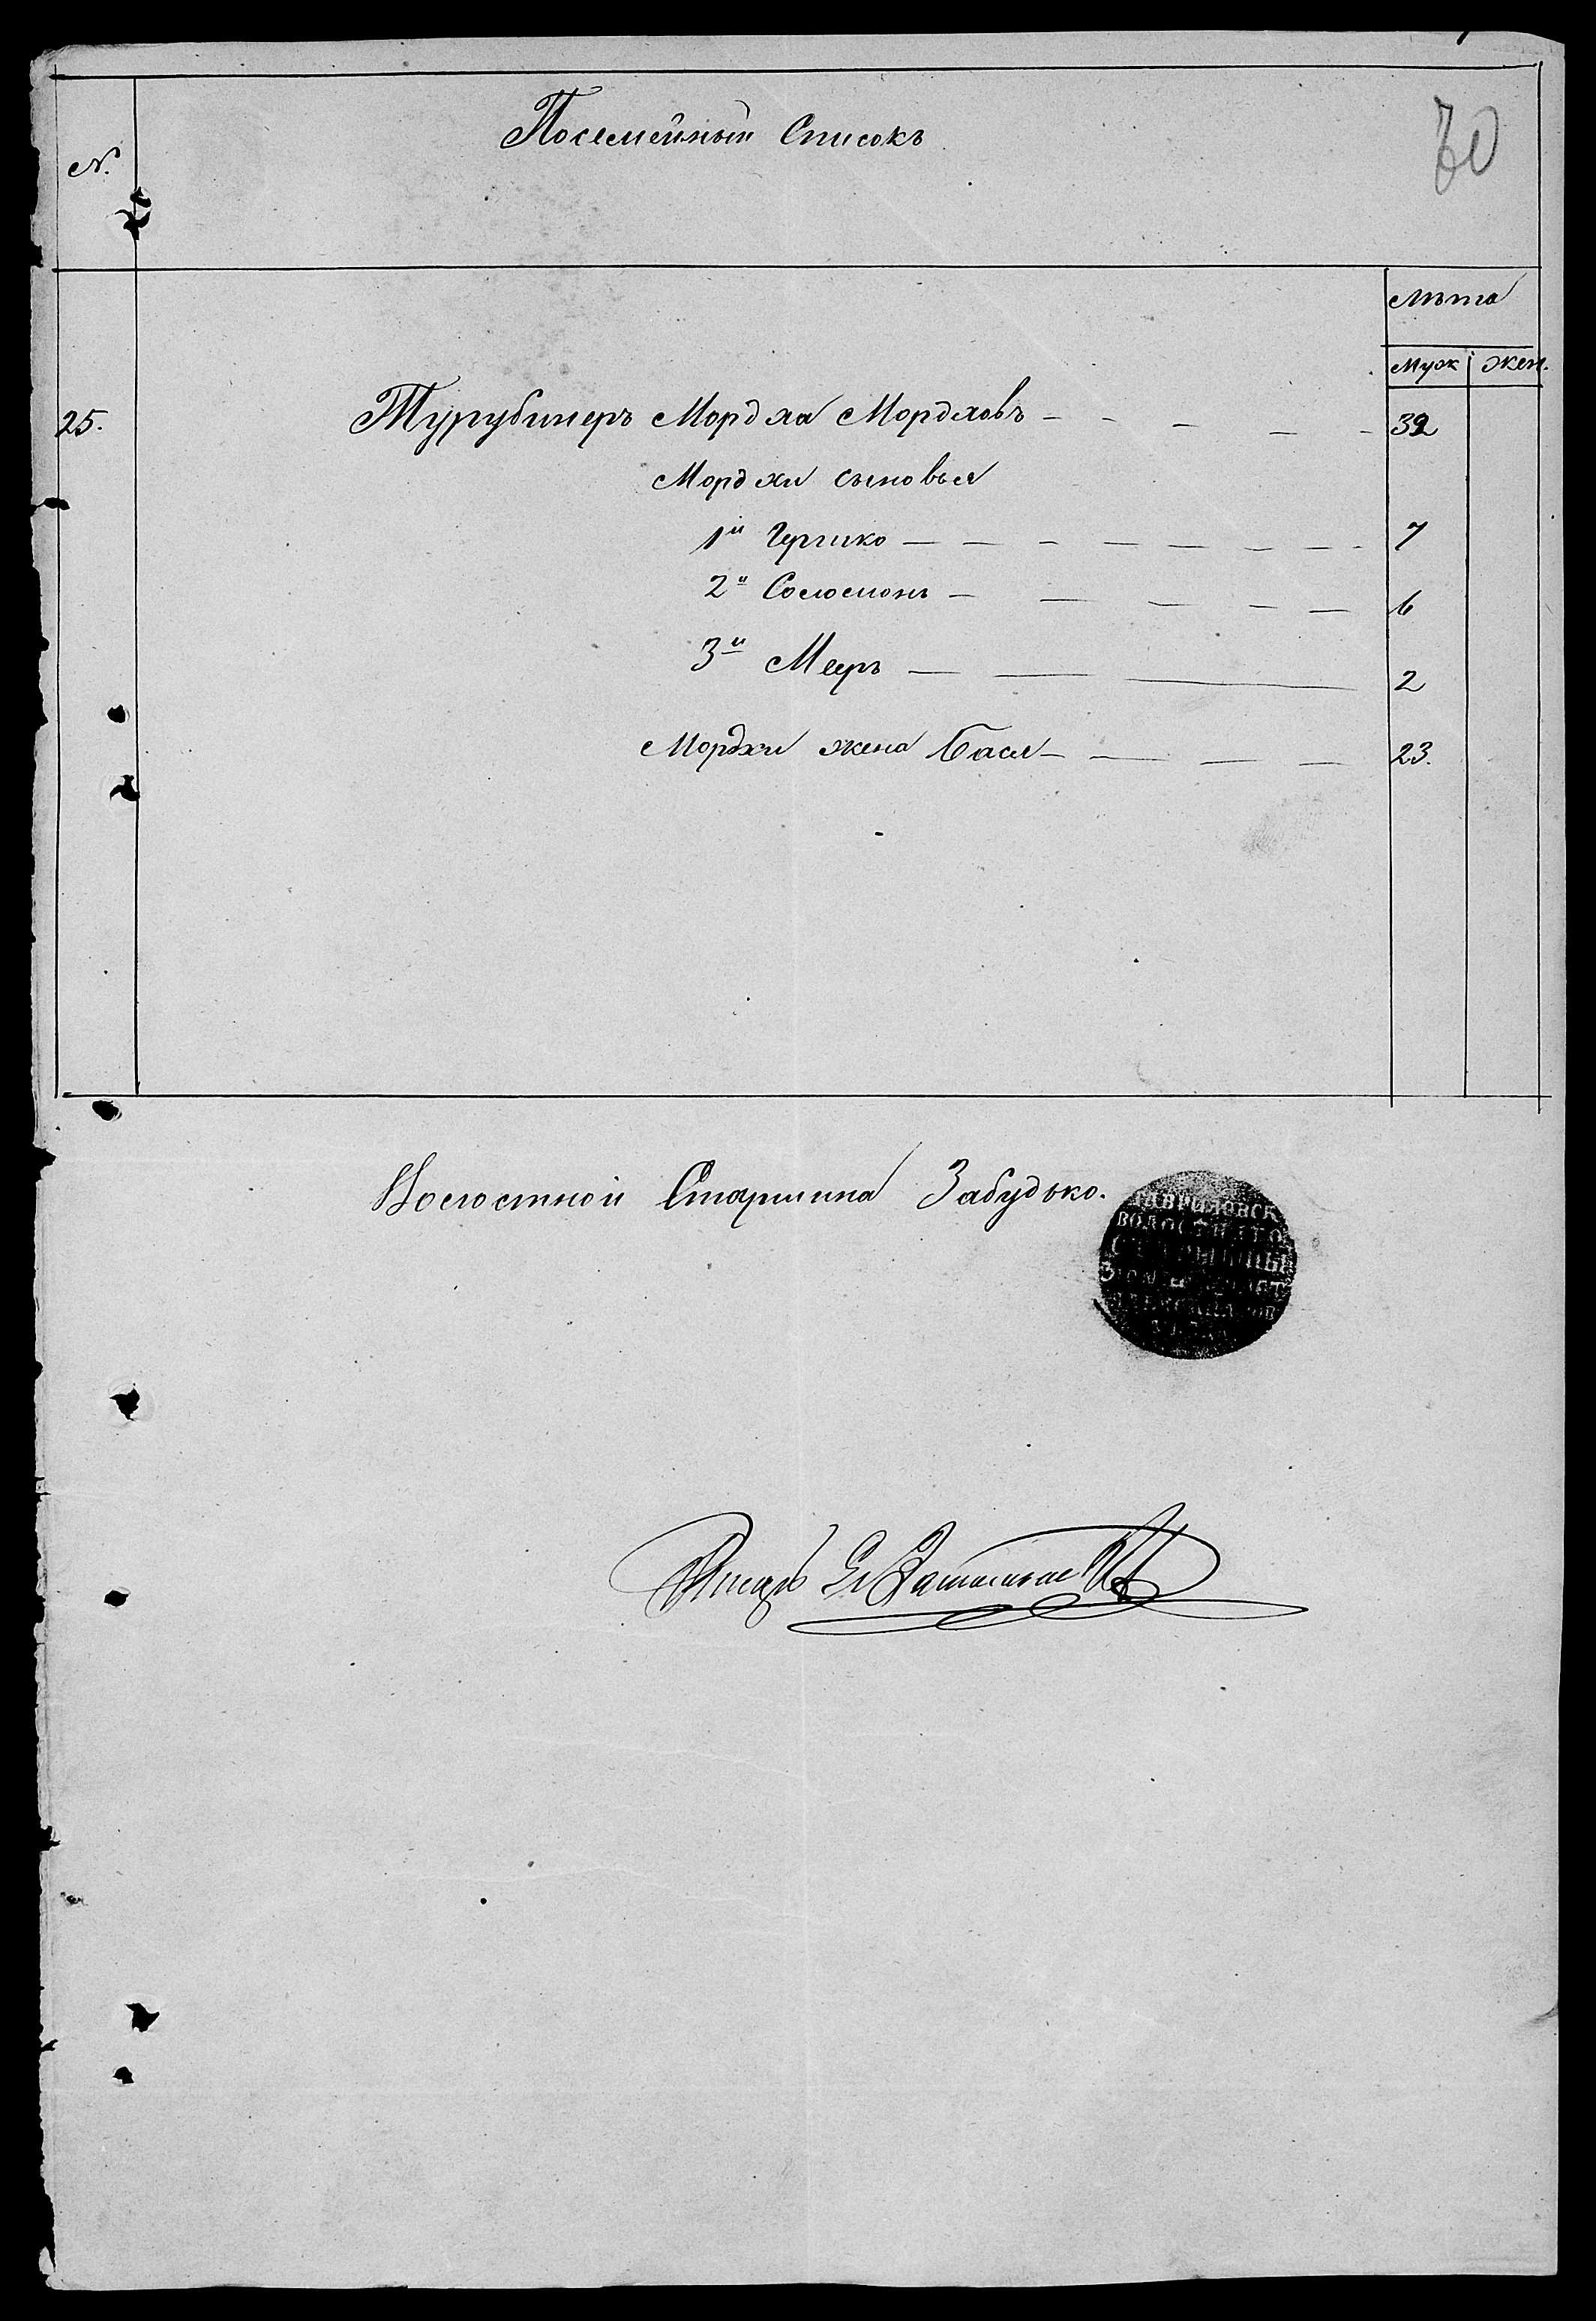 Посемейный Списокъ
70
№.
Лѣта
Муж Жен.
25. Турубинеръ Мордха Мордховъ - - - - - 32
Мордхи сыновья
1й Гершко — — — — — — — 7
2й Соломонъ — — — — — 6
3й Мееръ — — — 2
Мордхи жена Бася — — — — 23.
Волостной Старшина Забудько.
ГАВРИЛОВСК
ВОЛОСТНАГО
СТАРШИНЫ
Писарь